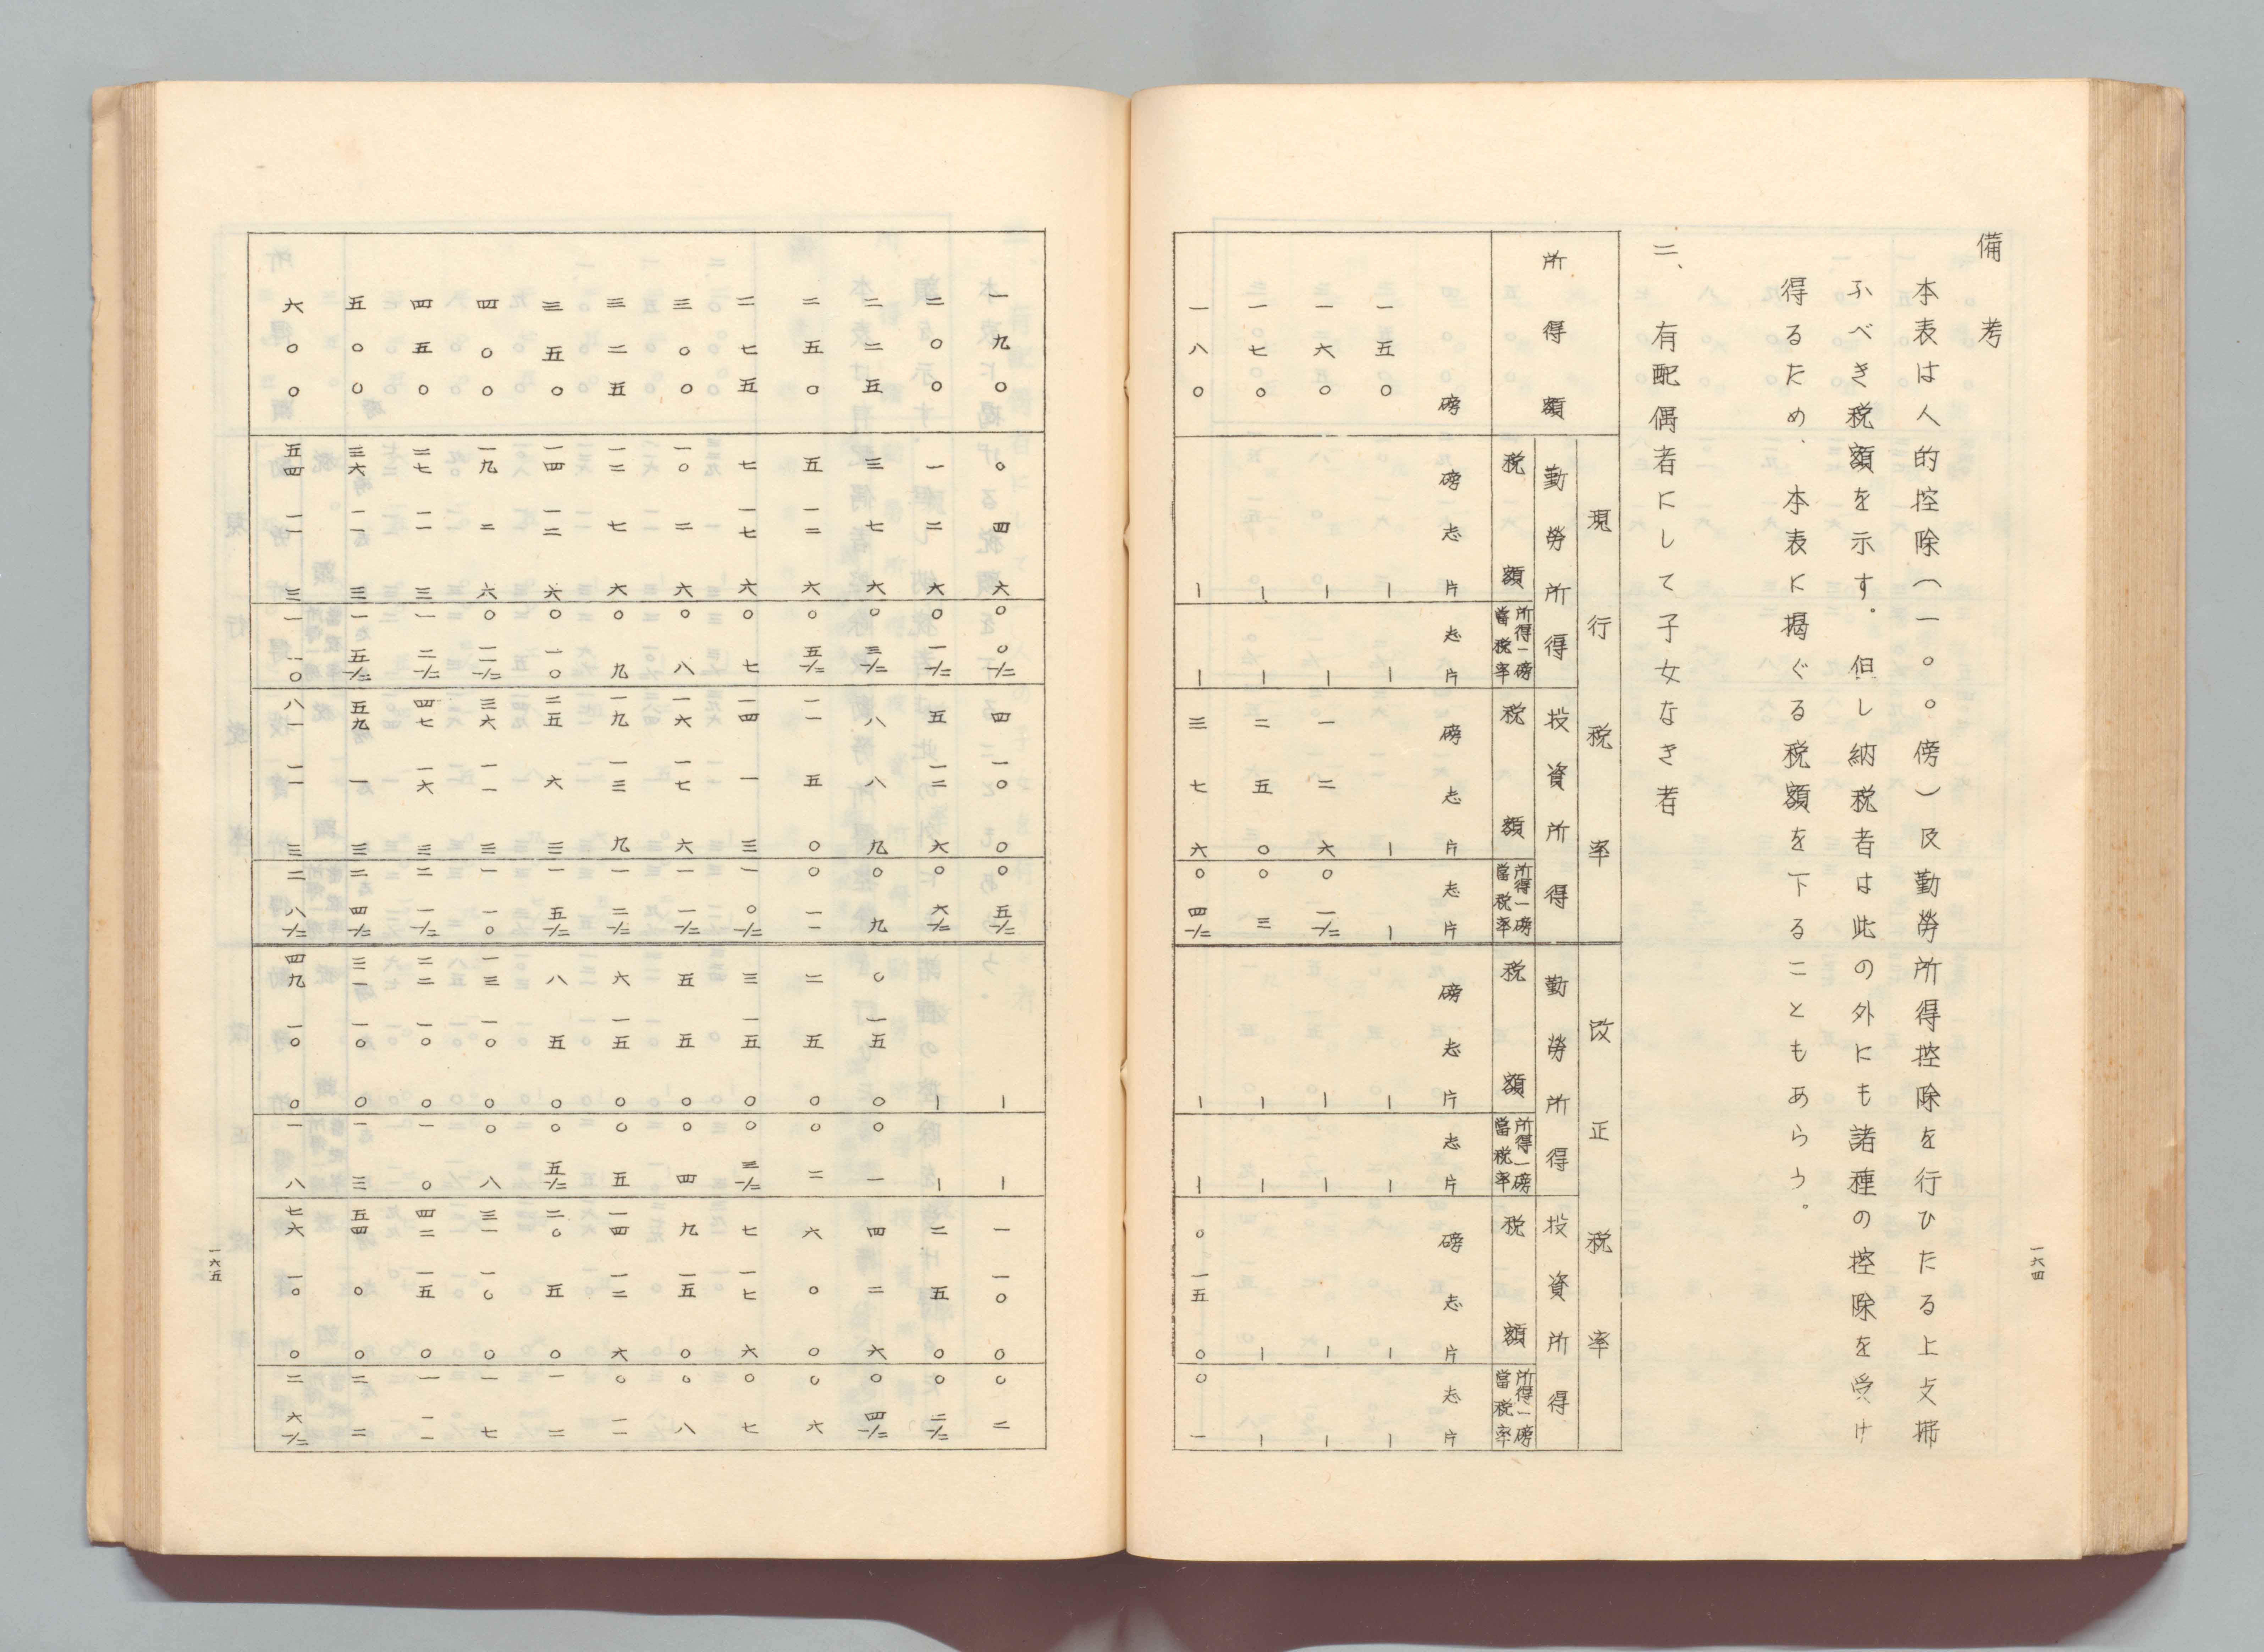 一六四
備考
本表は人的控除(一〇〇傍)及勤勞所得控除を行ひたる上支拂
ふべき税額を示す。但し納税者は此の外にも諸種の控除を受け
得るため、本表に揭ぐる税額を下ることもあらう。
二、有配偶者にして子女なき者
現行税率 改正税率
所得額 勤勞所得 投資所得 勤勞所得 投資所得
税額 所得一磅當税率 税額 所得一磅當税率 税額 所得一磅當税率 税額 所得一磅當税率
磅 磅 志 片 志 片 磅 志 片 志 片 磅 志 片 志 片 磅 志 片 志 片
一五〇 — — — — — — — —
一六〇 — — 一 二 六 〇 一/二 — — — —
一七〇 — — 二 五 〇 〇 三 — — — —
一八〇 — — 三 七 六 〇 四一/二 — — 〇 一五 〇 〇 一
一九〇 〇 四 六 〇 〇一/二 四 一〇 〇 〇 五一/二 — — 一 一〇 〇 〇 二
二〇〇 一 二 六 〇 一一/二 五 一二 六 〇 六一/二 — — 二 五 〇 〇 二一/二
二二五 三 七 六 〇 三一/二 八 八 九 〇 九 〇 一五 〇 〇 一 四 二 六 〇 四一/二
二五〇 五 一二 六 〇 五一/二 一一 五 〇 〇 一一 二 五 〇 〇 二 六 〇 〇 〇 六
二七五 七 一七 六 〇 七 一四 一 三 一 〇一/二 三 一五 〇 〇 三一/二 七 一七 六 〇 七
三〇〇 一〇 二 六 〇 八 一六 一七 六 一 一一/二 五 五 〇 〇 四 九 一五 〇 〇 八
三二五 一二 七 六 〇 九 一九 一三 九 一 二一/二 六 一五 〇 〇 五 一四 一二 六 〇 一一
三五〇 一四 一二 六 〇 一〇 二五 六 三 一 五一/二 八 五 〇 〇 五一/二 二〇 五 〇 一 二
四〇〇 一九 二 六 〇 一一一/二 三六 一一 三 一 一〇 一三 一〇 〇 〇 八 三一 一〇 〇 一 七
四五〇 二七 一一 三 一 二一/二 四七 一六 三 二 一一/二 二二 一〇 〇 一 〇 四二 一五 〇 一 一一
五〇〇 三六 一一 三 一 五一/二 五九 一 三 二 四一/二 三一 一〇 〇 一 三 五四 〇 〇 二 二
六〇〇 五四 一一 三 一 一〇 八一 一一 三 二 八一/二 四九 一〇 〇 一 八 七六 一〇 〇 二 六一/二
一六五